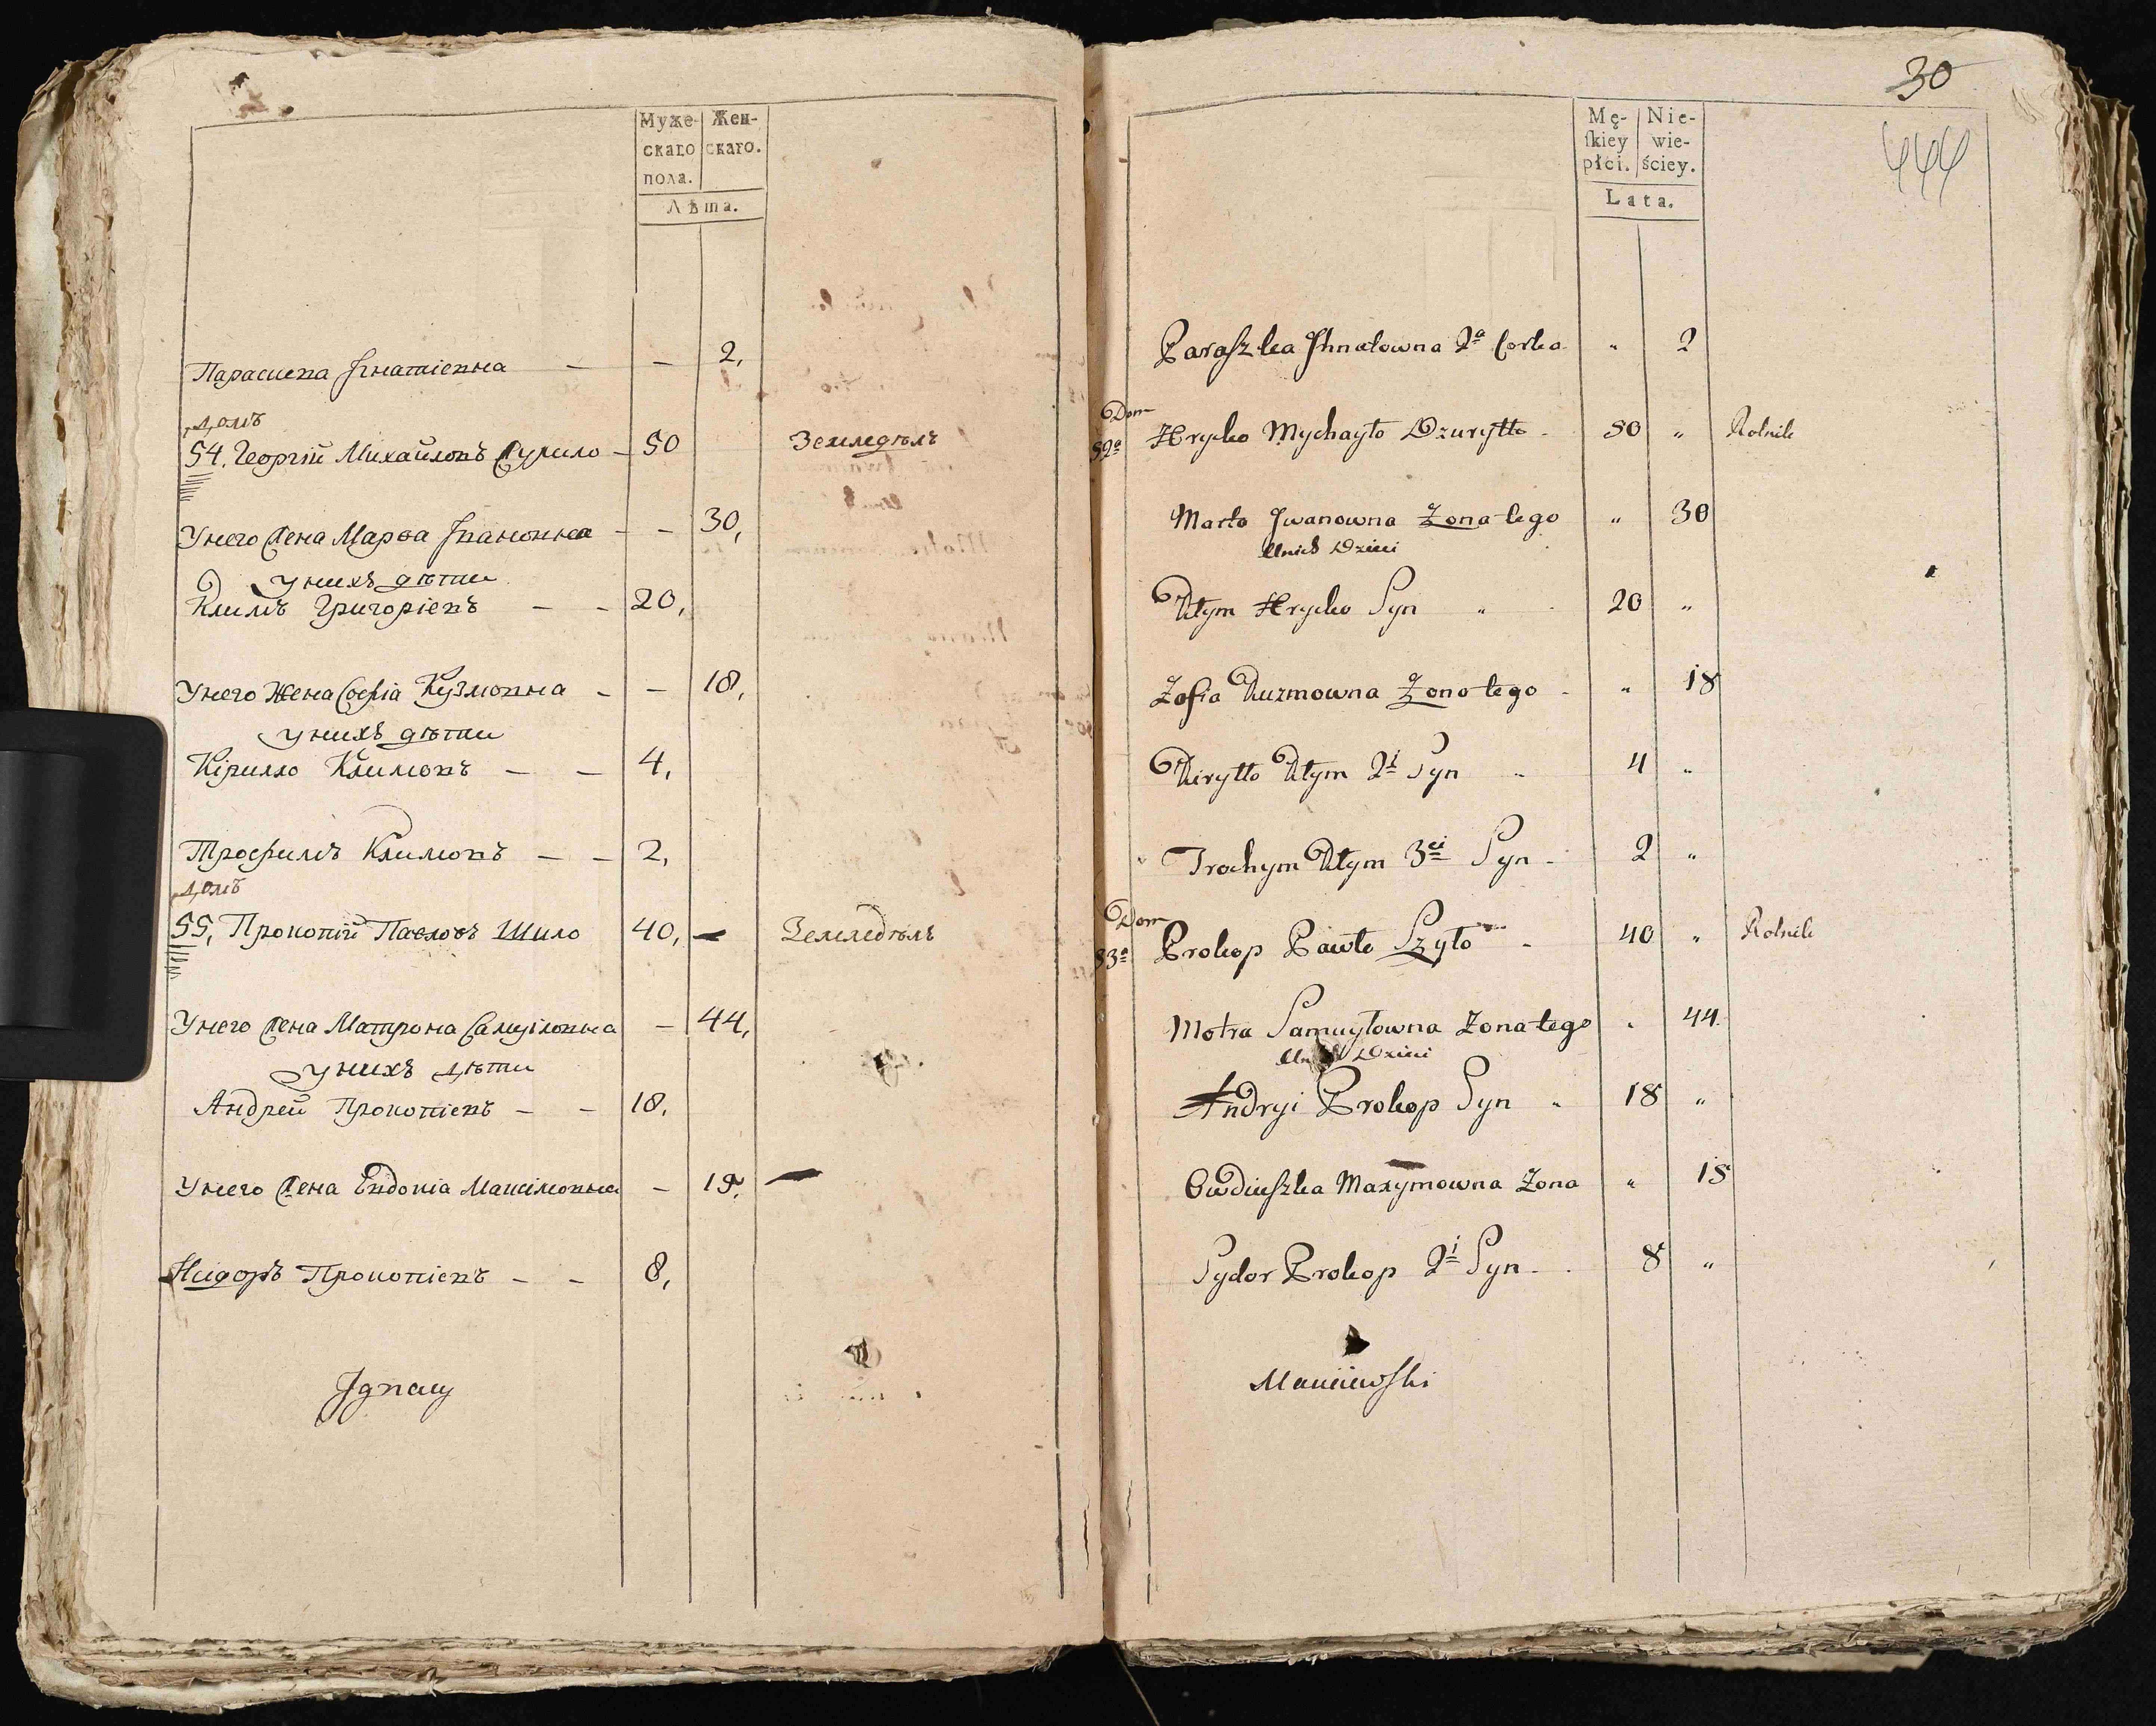 Муже-
скаго
пола.
Жен-
скаго.
Лѣта.
Параскева Игнатіевна — — 2,
домъ
54. Георгій Михайловъ — 50 Земледѣлъ
У него жена Марѳа Ивановна — — 30,
у нихъ дѣти
Климъ Григоріевъ — — 20,
У него Жена Софія Кузмовна — — 18,
у нихъ дѣти
Кірилло Климовъ — — 4,
Трофимъ Климовъ — — 2,
домъ
55, Прокопій Павловъ Шило 40, — Земледѣлъ
У него жена Матрона Самуіловна — 44,
у нихъ дѣти
Андрей Прокопіевъ — — 18,
У него жена Евдокіа Максімовна —
Исидоръ Прокопіевъ — — 8,
Ignacy
30
444
Mę-
ſkiey
płci.
Nie-
wie-
ściey.
Lata.
Paraszka Ihnatowna 2a Corka " 2
Dom
Hryćko Mychayło Dzuryłło 50 " Rolnik
Marta Jwanowna Żona tego " 30
U nich Dzieci
Kłym Hryćko Syn " 20 "
Zofia Kuzmowna Żona tego " 18
Kiryłło Kłym 2i Syn " 4 "
Trochym Kłym 3ci Syn 2 "
Dom
53a Prokop Pawło Szyło 40 " Rolnik
Motra Samuyłowna Żona tego " 44
U nich Dzieci
Andryi Prokop Syn " 18 "
Owdiuszka Maxymowna Żona " 18
Sydor Prokop 2i Syn 8 "
Maciiewski